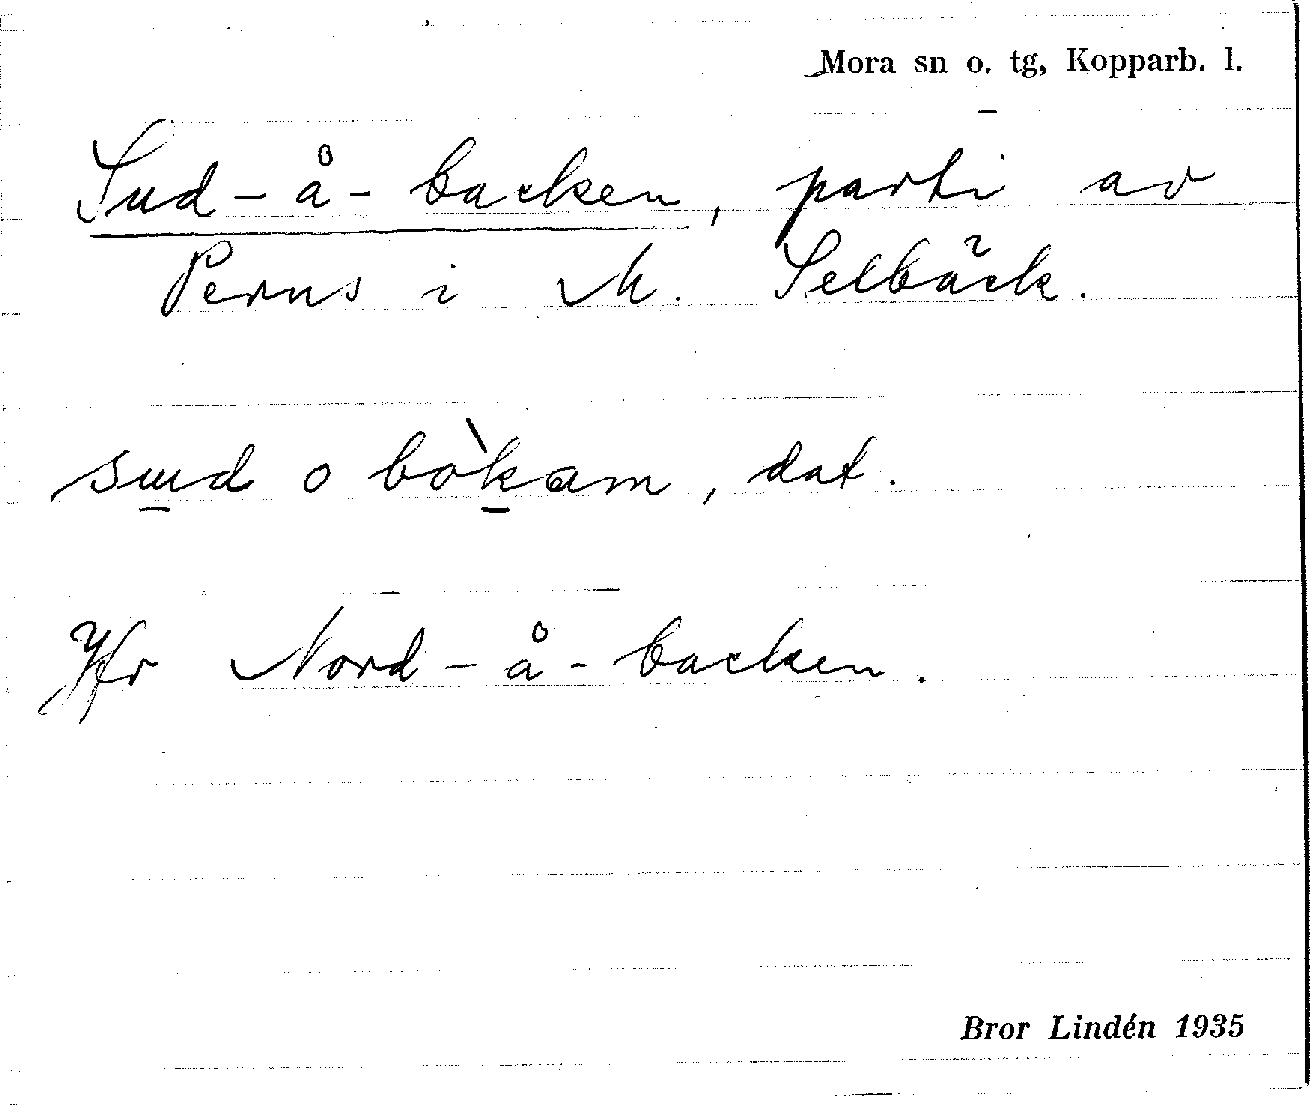 Mora sn o. tg, Kopparb. l.
Sud-å-backen, parti av
Perus i M. Selbäck.
sud o bòkam, dat.
Jfr Nord-å-backen.
Bror Lindén 1935